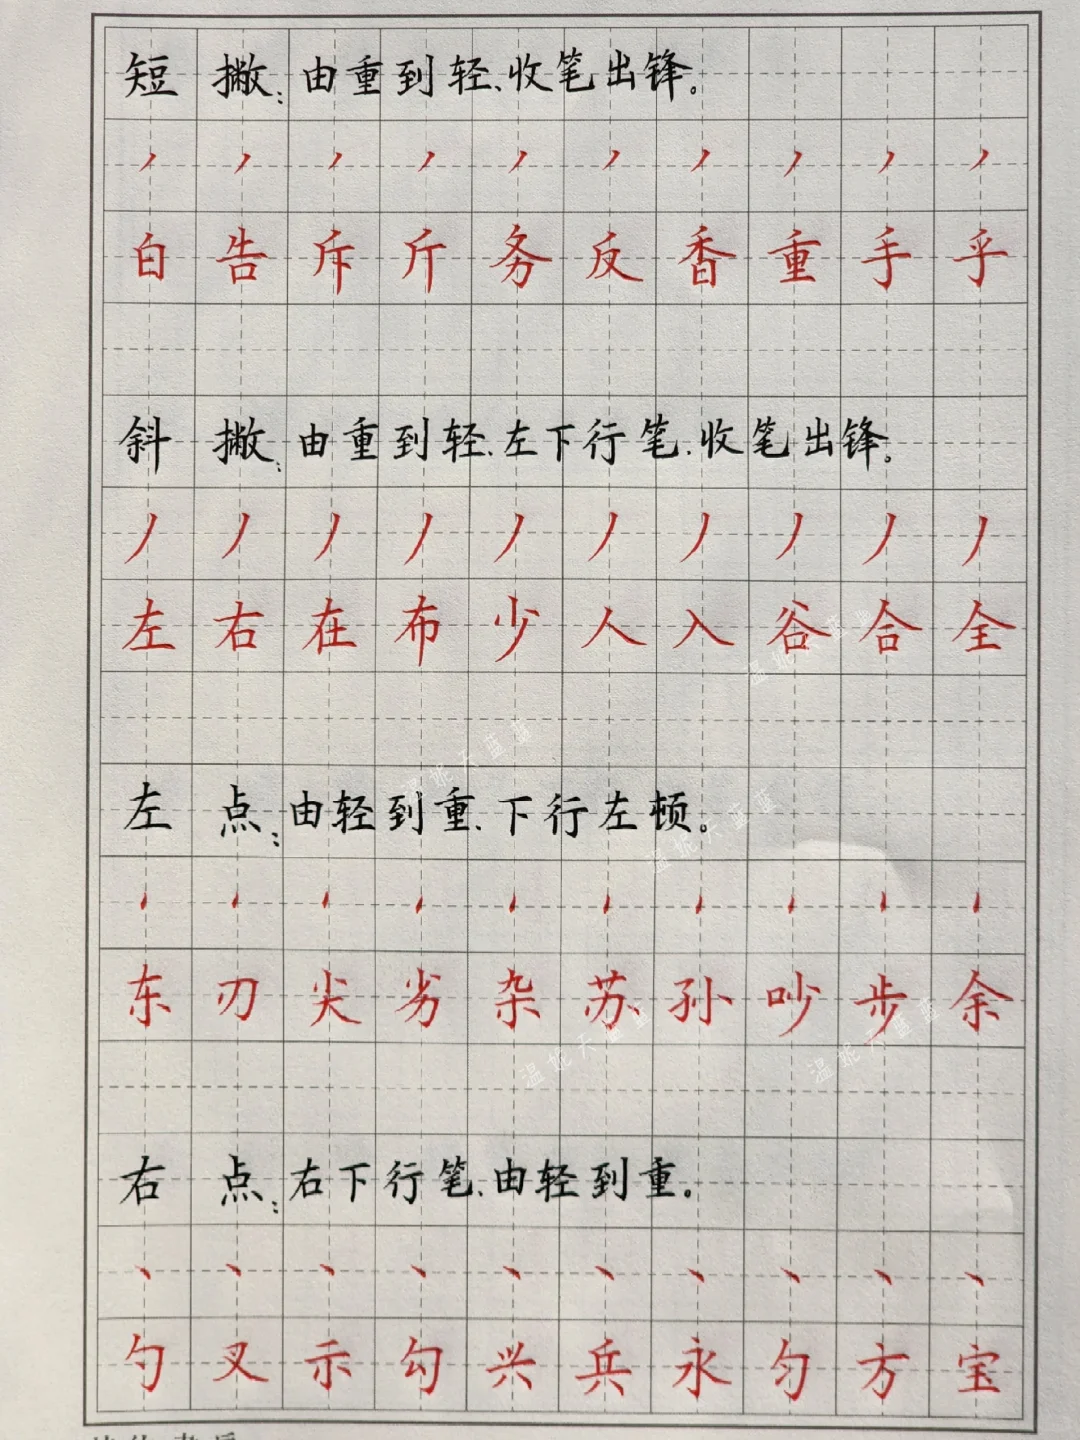 短撇：由重到轻、收笔出锋。
丿丿丿丿丿丿丿丿丿丿
白告斥斤务反香重手乎
斜撇：由重到轻、左下行笔、收笔出锋。
丿丿丿丿丿丿丿丿丿丿
左右在布少人入谷合全
温妮天蓝蓝
温妮天蓝蓝
左点：由轻到重、下行左顿。
温妮天蓝蓝
东刃尖劣杂苏孙吵步余
温妮天蓝蓝
温妮天蓝蓝
右点：右下行笔、由轻到重。
丶丶丶丶丶丶丶丶丶丶
勺叉示勾兴兵永匀方宝